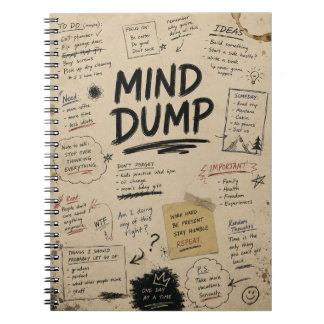 TO DO (maybe):
- Call plumber
- Fix garage door
- Buy screws
- Pick up dry cleaning
FOCUS ON:
- Be better
- Do good
- Don't suck
remember
why you're
doing all of
this.
IDEAS
- Build something
- Start a side hustle
- Write a book
MIND
DUMP
Need
- more coffee
- more time
- less idiots
SOMEDAY:
- Road trip
- Montana
- Cabin
- No phones
- Just us
Note to self:
STOP OVER
THINKING
EVERYTHING.
DON'T FORGET:
- kids practice Wed 6pm
- oil change
- mom's bday gift
IMPORTANT!
- Family
- Health
- Freedom
- Experiences
People don't
care about
anything
WTF
Am I doing
any of this
right?
WORK HARD
BE PRESENT
STAY HUMBLE
REPEAT.
Random
Thoughts:
Time is the
only thing
you can't get
back.
THINGS I SHOULD
PROBABLY LET GO OF:
- grudges
- perfect
- what other people think
- stuff
?
ONE DAY
AT A TIME
P.S.
Take more
vacations
Seriously.